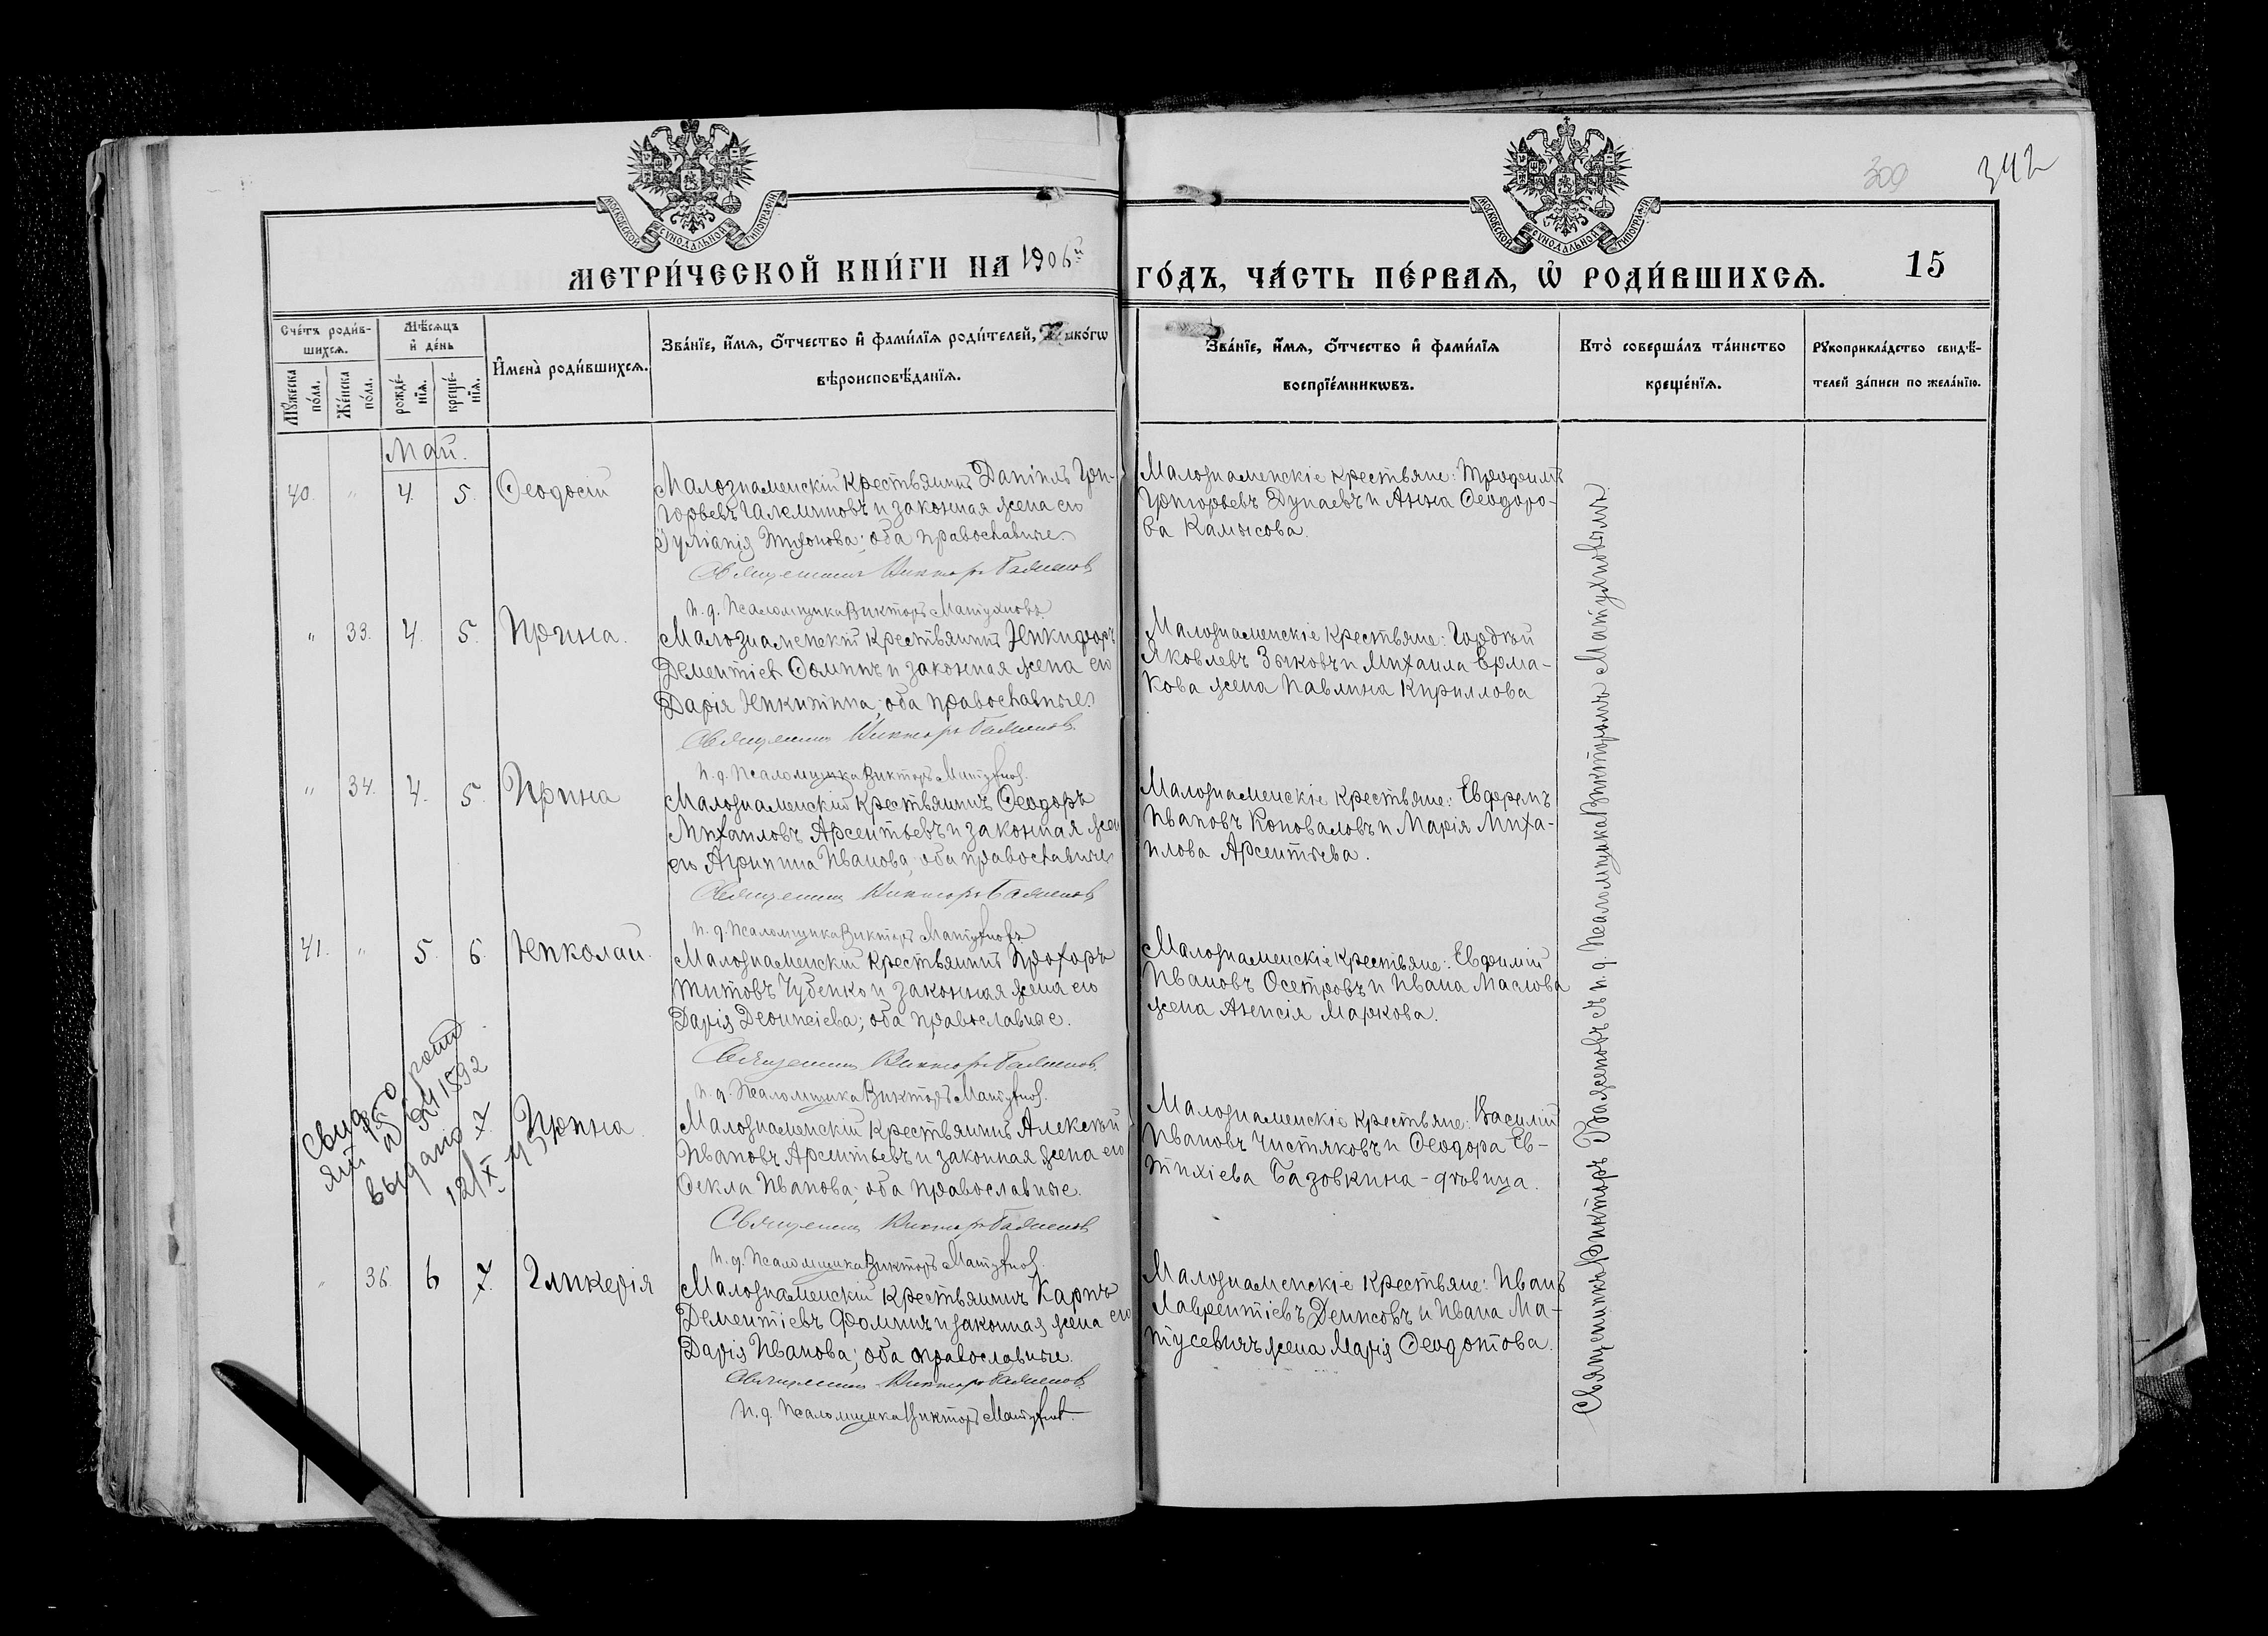 МОСКОВСКОЙ СѴНОДАЛЬНОЙ ТИПОГРАФІИ
МОСКОВСКОЙ СѴНОДАЛЬНОЙ ТИПОГРАФІИ
309
342
МЕТРИ́ЧЕСКОЙ КНИ́ГИ НА 1906й
ГО́ДЪ, ЧА́СТЬ ПЕ́РВАѦ, Ѡ҆ РОДИ́ВШИХСѦ.
15
Сче́тъ роди́в-
шихсѧ.
Мѣ́сѧцъ
и҆ де́нь
И҆мена̀ роди́вшихсѧ.
Зва́нїе, и҆́мѧ, ѻ҆́тчество и҆ фами́лїѧ роди́телей, и҆ како́гѡ
вѣроисповѣ́данїѧ.
Мꙋ́жеска
по́ла.
Же́нска
по́ла.
рожде́-
нїѧ.
креще́-
нїѧ.
Зва́нїе, и҆́мѧ, ѻ҆́тчество и҆ фами́лїѧ
воспрїе́мникѡвъ.
Кто̀ соверша́лъ та́инство
креще́нїѧ.
Рꙋкоприкла́дство свидѣ́-
телей за́писи по жела́нїю.
Май.
40. " 4. 5. Ѳеодосій
Малознаменскій крестьянинъ Даніилъ Гри-
горьевъ и законная жена его
Іуліанія Тихонова; оба православные.
Священникъ Викторъ Баженовъ
И. д. Псаломщика Викторъ Матухновъ
Малознаменскіе крестьяне: Трофимъ
Григорьевъ Дунаевъ и Анна Ѳеодоро-
ва Камысова.
" 33. 4. 5. Ирина.
Малознаменскій крестьянинъ Никифоръ
Дементіевъ Ѳоминъ и законная жена его
Дарія Никитина; оба православные.
Священникъ Викторъ Баженовъ
И. д. Псаломщика Викторъ Матухнов.
Малознаменскіе крестьяне: Гордѣй
Яковлевъ Зыковъ и Михаила Ерма-
кова жена Павлина Кириллова
" 34. 4. 5. Ирина
Малознаменскій крестьянинъ Ѳеодоръ
Михаиловъ Арсентьевъ и законная жена
его Агрипина Иванова; оба православные
Священникъ Викторъ Баженовъ
И. д. Псаломщика Викторъ Матухновъ
Малознаменскіе крестьяне: Евфремъ
Ивановъ Коноваловъ и Марія Миха-
илова Арсентьева.
41. " 5. 6. Николай.
Малознаменскій крестьянинъ Прохоръ
Титовъ Чубенко и законная жена его
Дарія Деонисіева; оба православные.
Священникъ Викторъ Баженовъ
И. д. Псаломщика Викторъ Матухнов.
Малознаменскіе крестьяне: Евфимій
Ивановъ Осетровъ и Ивана Маслова
жена Маркова.
35. 7. Ирина.
Свид. о рожд
1592
выдано
12/X
Малознаменскій крестьянинъ Алексѣй
Ивановъ Арсентьевъ и законная жена его
Ѳекла Иванова; оба православные.
Священникъ Викторъ Баженовъ
И. д. Псаломщика Викторъ Матухнов.
Малознаменскіе крестьяне: Василій
Ивановъ Чистяковъ и Ѳеодора Ев-
тихіева Базовкина - дѣвица.
" 36. 6 7. Гликерія
Малознаменскій крестьянинъ Карпъ
Дементіевъ Фоминъ и законная жена его
Дарія Иванова; оба православные.
Священникъ Викторъ Баженовъ
И. д. Псаломщика Викторъ Матухнов.
Малознаменскіе крестьяне: Иванъ
Лаврентіевъ Денисовъ и Ивана Ма-
тусевичъ жена Марія Ѳеодотова.
Священникъ Викторъ Баженовъ съ и. д. Псаломщика Викторомъ Матухновымъ